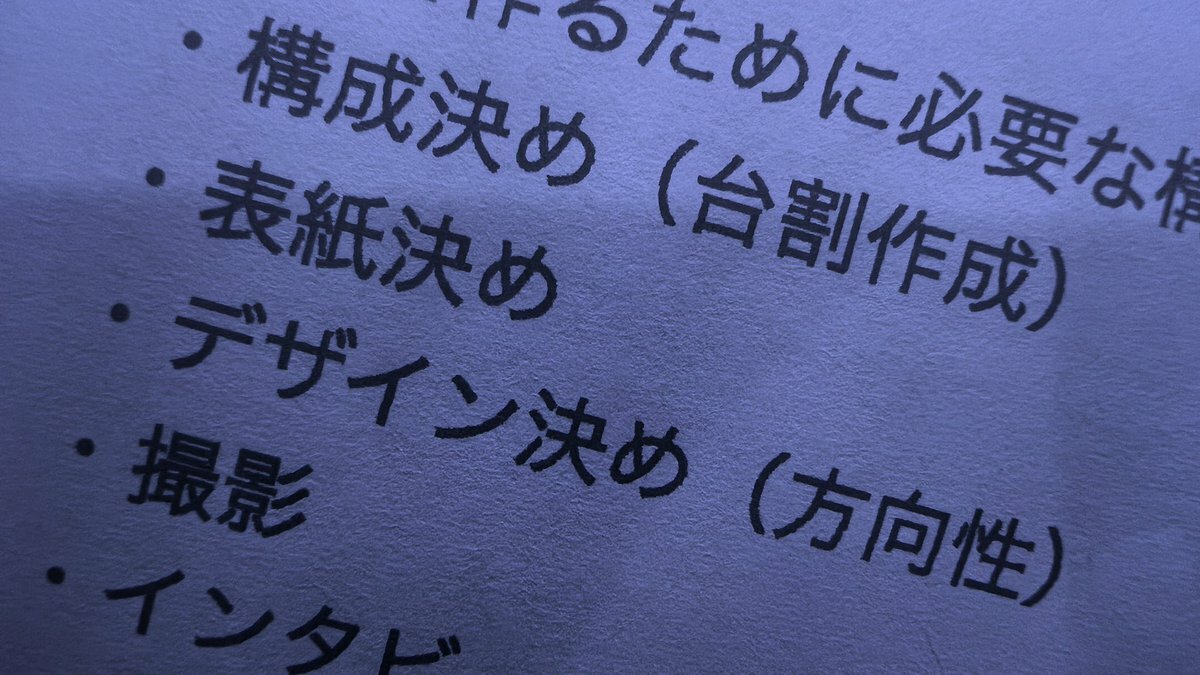 作るために必要な構
・構成決め（台割作成）
・表紙決め
・デザイン決め（方向性）
・撮影
・インタビ